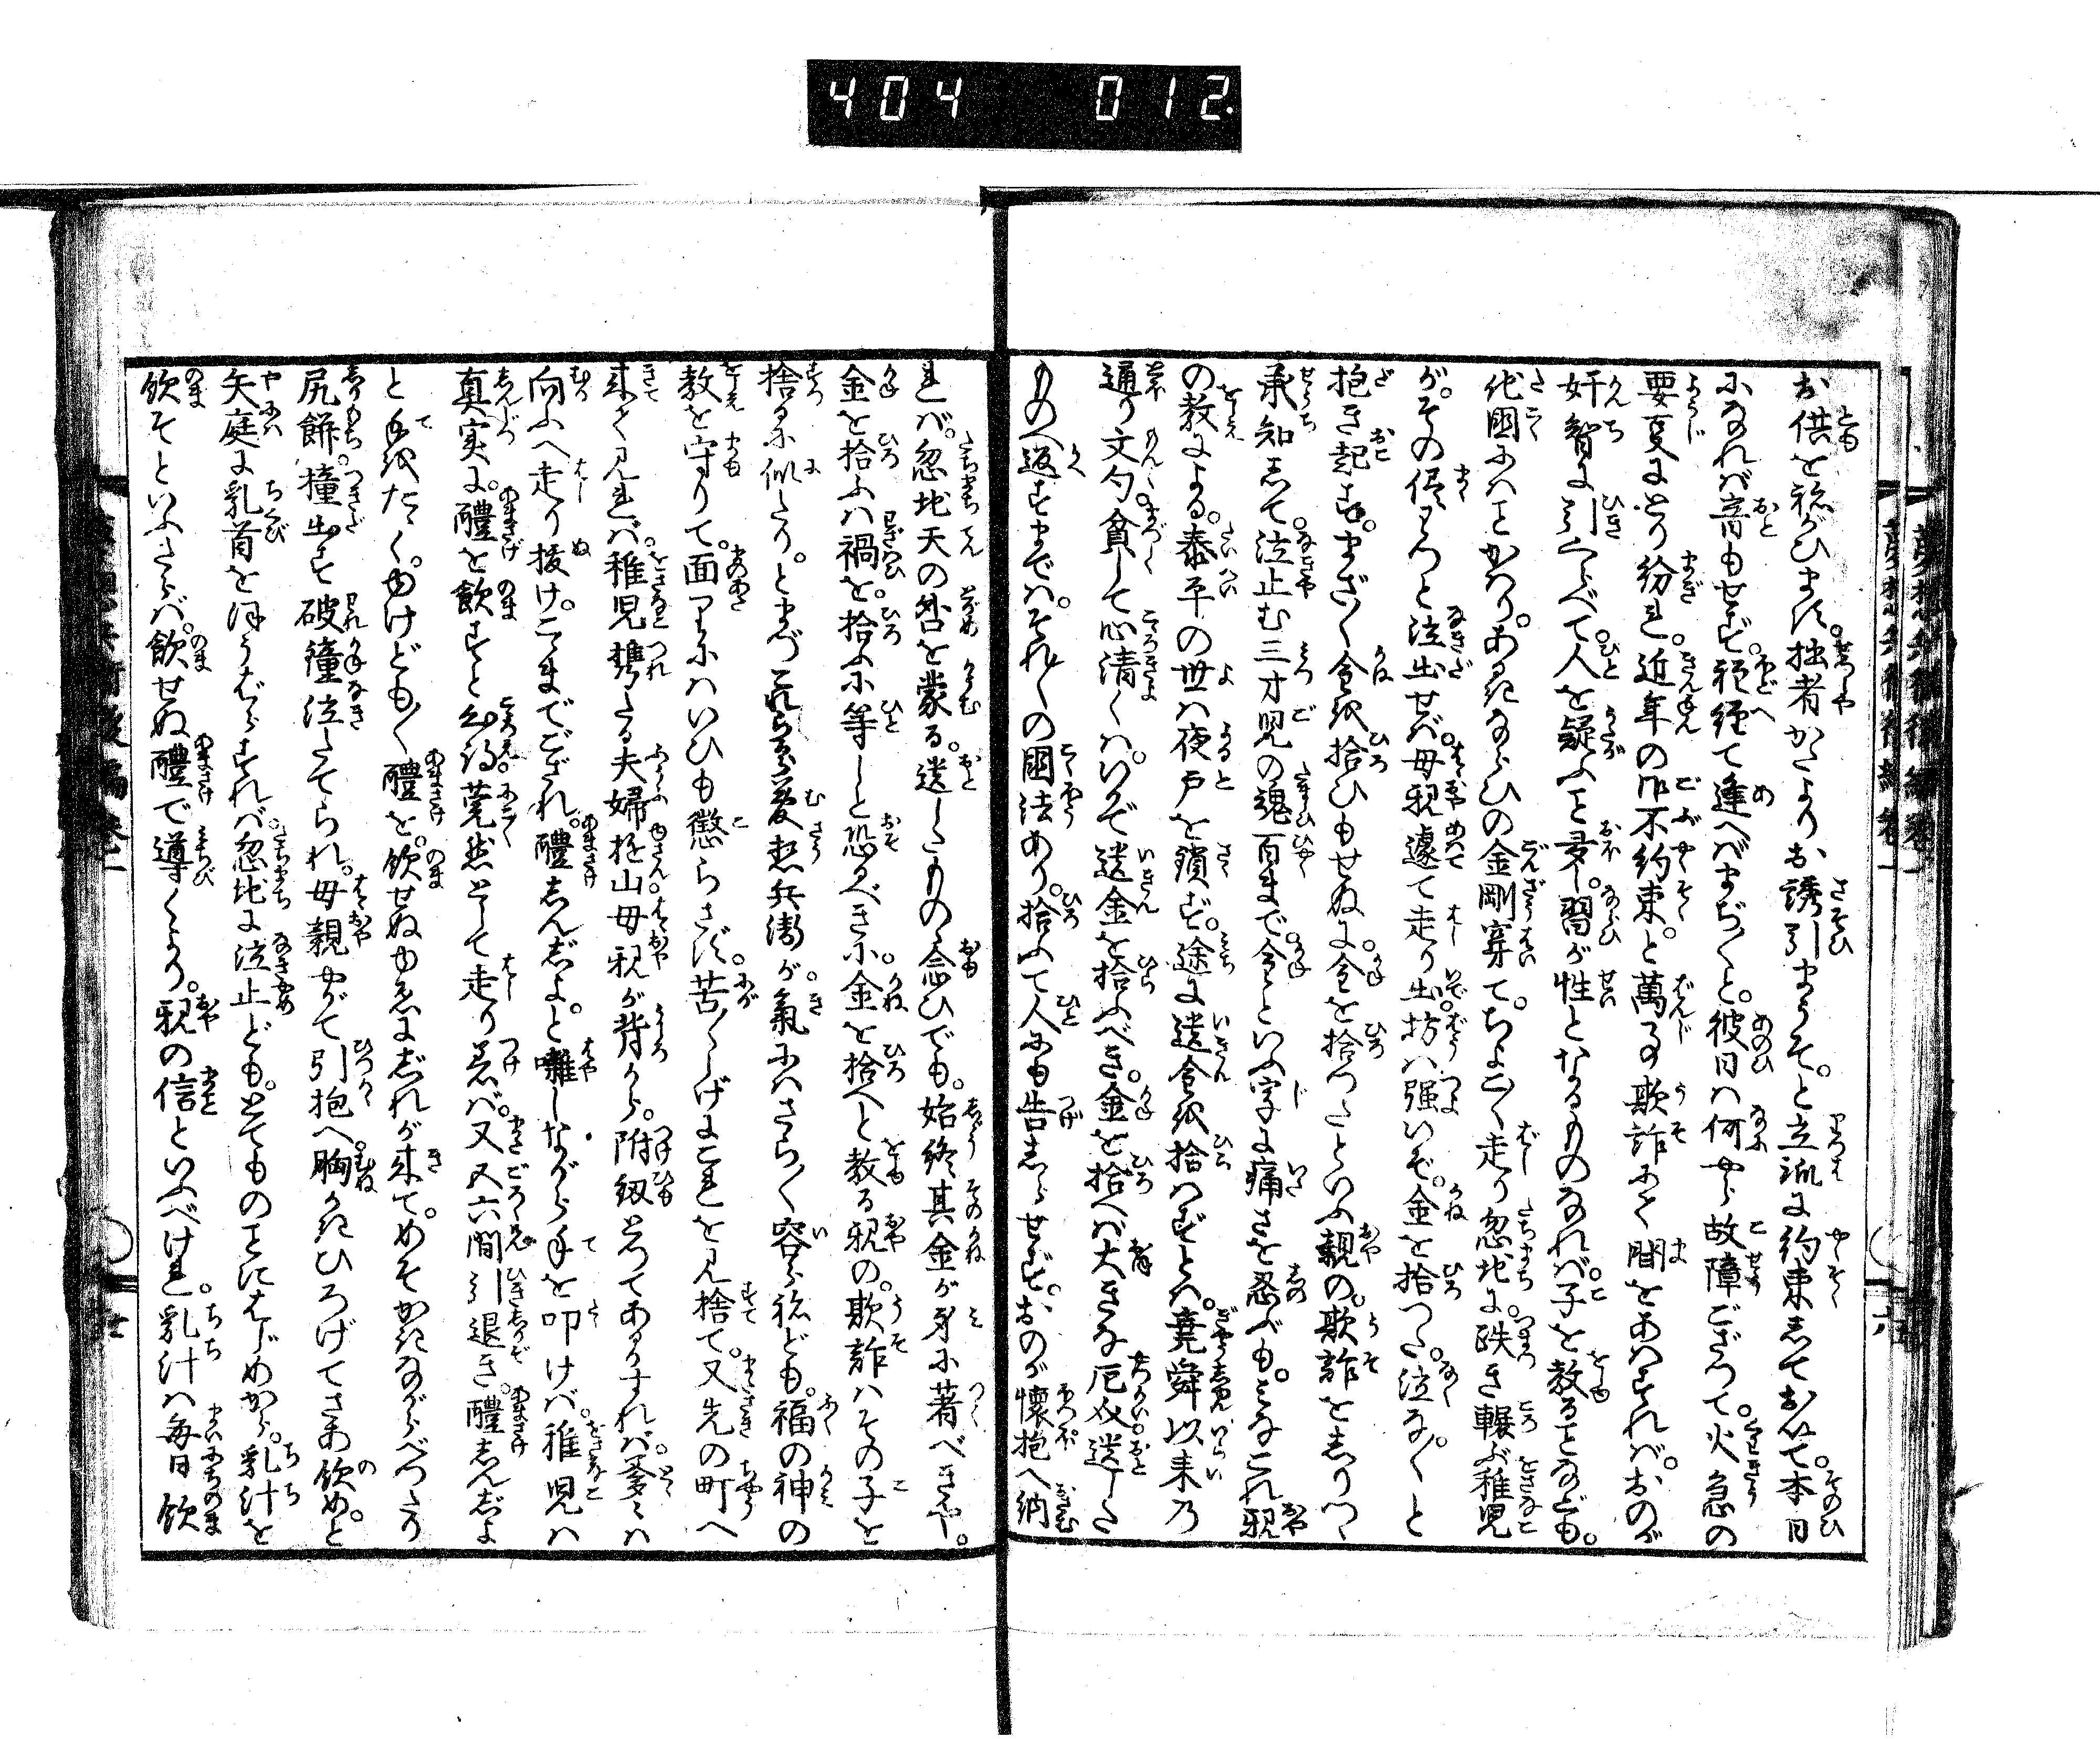 404 012.
お供を願ひます。拙者かたよりお誘引まうそ。と立派に約束しておいて。本日
になれば音もせず。程経て逢へばまぢ〳〵と。彼日は何やら故障ござつて。火急の
要事にとり紛れ。近年の御不約束。と萬事欺詐にて間をあはすれば。おのが
奸智に引くらべて。人を疑ふこと多し。習が性となるものなれば。子を教ることなども。
他國にはことかはり。あきなひの金剛穿て。ちよこ〳〵走り忽地に。跌き輾ぶ稚児
が。その侭わつと泣出せば。母親遽て走り出。坊は強いぞ。金を拾つた。泣な〳〵と
抱き起す。まざ〳〵金を拾ひもせぬに。金を拾つたといふ親の。欺詐をしりつゝ
承知して。泣止む三才児の魂百まで。金といふ字に痛さを忍ぶも。みなこれ親
の教による。泰平の世は夜戸を鎖ず。途に遺金を拾はずとは。堯舜以来の
通り文句。貧して心清くは。いかで遺金を拾ふべき。金を拾へば大きな厄災。遺した
ものへ返すまでは。それ〳〵の國法あり。拾ふて人にも告しらせず。おのが懐抱へ納
れば。忽地天の咎を蒙る。遺したもの念ひでも。始終其金が身に著べきや。
金を拾ふは禍を。拾ふに等しと恐るべきに。金を拾へと教る親の。欺詐はその子を
捨るに似たり。とまづ夢想兵衛が。氣にはさら〳〵容らねども。福の神の
教を守りて。面はにはいひも懲らさず。苦〳〵しげにこれを見捨て。又先の町へ
来て見れば。稚児携たる夫婦遊山。母親が背から。附紐とつてあるかすれば。爹々は
向ふへ走り抜け。こゝまでござれ。醴しんぢよ。と囃しながら手を叩けば。稚児は
真実に。醴を飲すと心得。莞然として走り著ば。又五六間引退き。醴しんぢよ
と手をたゝく。ゆけども〳〵醴を。飲せぬゆゑにじれが来て。めそかきながらべつたり
尻餅。撞出す破鐘泣たてられ。母親やがて引抱へ。胸かきひろげてさあ飲め。と
矢庭に乳首をほうばらすれば。忽地に泣止ども。とてものことにはじめから。乳汁を
飲そといふたらば。飲せぬ醴で導くより。親の信といふべけれ。乳汁は毎日飲